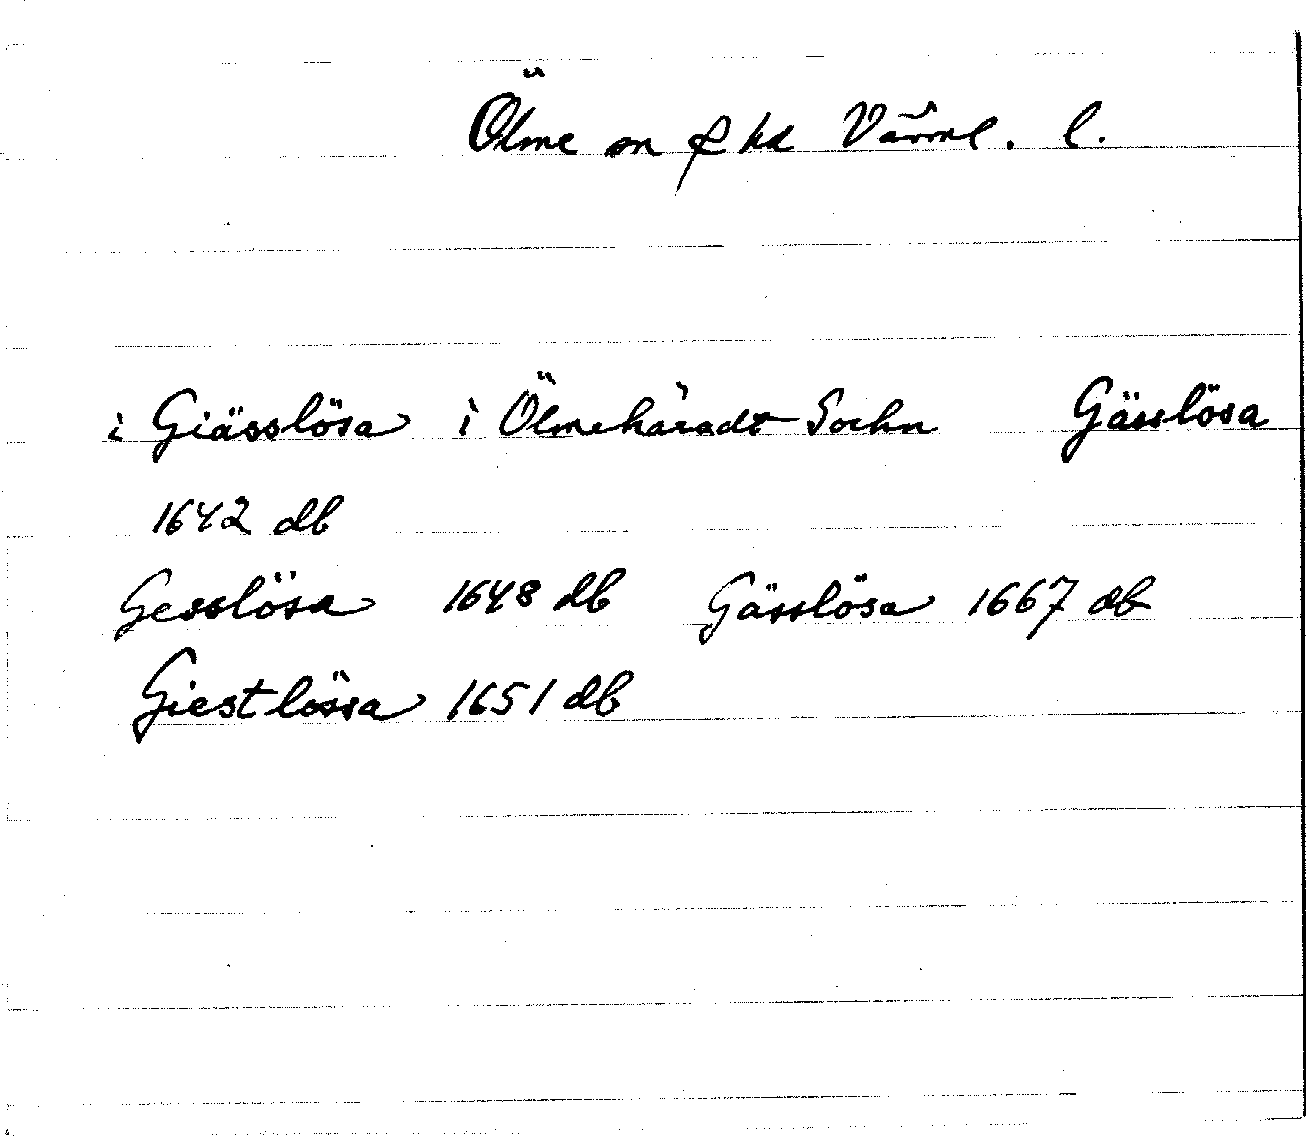 Ölme sn & hd Värml. l.
i Giässlösa i Ölmehäradt Sochn Gässlösa
1642 db
Gesslösa 1648 db Gässlösa 1667 db
Giestlössa 1651 db